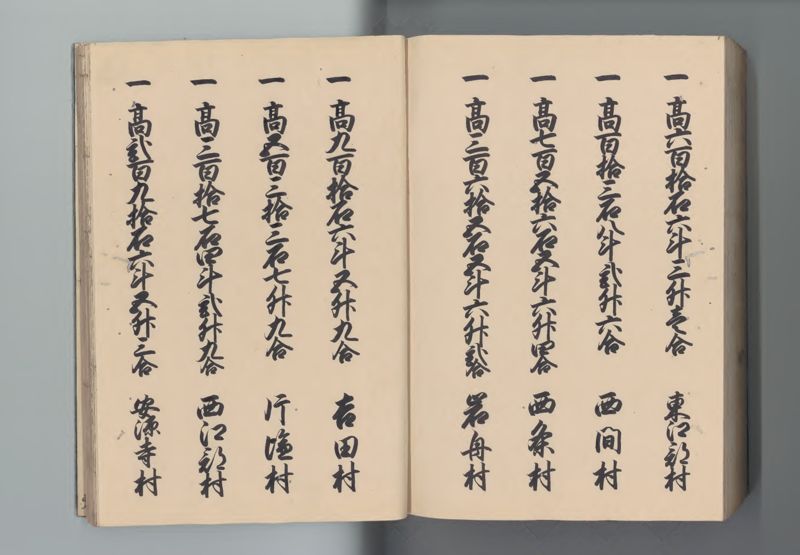 一 高六百拾石六斗三升壱合 東江部村
一 高百拾三石八斗弐升六合 西間村
一 高七百五拾六石五斗六升四合 西条村
一 高三百六拾五石五斗六升弐合 岩舟村
一 高九百拾石六斗五升九合 吉田村
一 高五百三拾三石七升九合 片塩村
一 高三百拾七石四斗弐升九合 西江部村
一 高弐百九拾石六斗五升三合 安源寺村